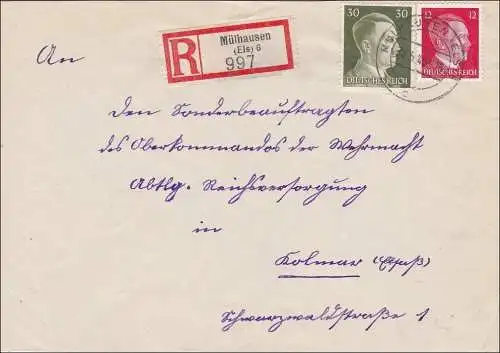 Mülhausen
(Els) 6
R
997
30 30
DEUTSCHES REICH
12 12
DEUTSCHES REICH
An
den Sonderbeauftragten
des Oberkommandos der Wehrmacht
Abtlg. Reichsversorgung
in
Kolmar (Elsaß)
Schwarzwaldstraße 1